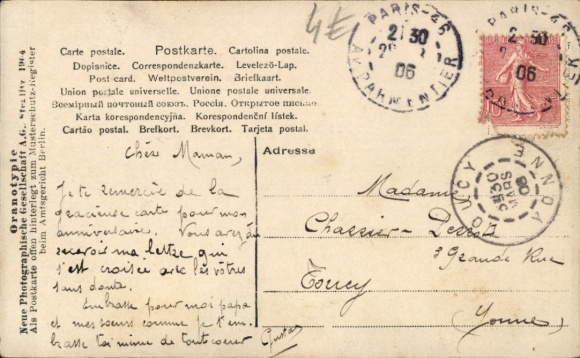 4E
PARIS-46
21 30
06
AV. PARMENTIER
PARIS-46
2 30
06
10
Carte postale. Postkarte. Cartolina postale.
Dopisnice. Correspondenzkarte. Levelező-Lap.
Post-card. Weltpostverein. Briefkaart.
Union postale universelle. Unione postale universale.
Всемірный почтовый союзъ. Россія. Открытое письмо.
Karta korespondencyjna. Korespondenční lístek.
Cartão postal. Brefkort. Brevkort. Tarjeta postal.
Oranotypie
Neue Photographische Gesellschaft A.G., Steglitz 1904
Als Postkarte offen hinterlegt zum Musterschutz-Register
beim Amtsgericht Berlin.
Chère Maman,
Je te remercie de la
gracieuse carte pour mon
anniversaire. Vous avez dû
recevoir ma lettre qui
s'est croisée avec les vôtres
sans doute.
Embrasse pour moi papa
et mes sœurs comme je t'em
brasse toi même de tout cœur
Gustave
Adresse
TOUCY
YONNE
MARS
06
Madame
Chassier-
3 Grande Rue
Toucy
(Yonne)